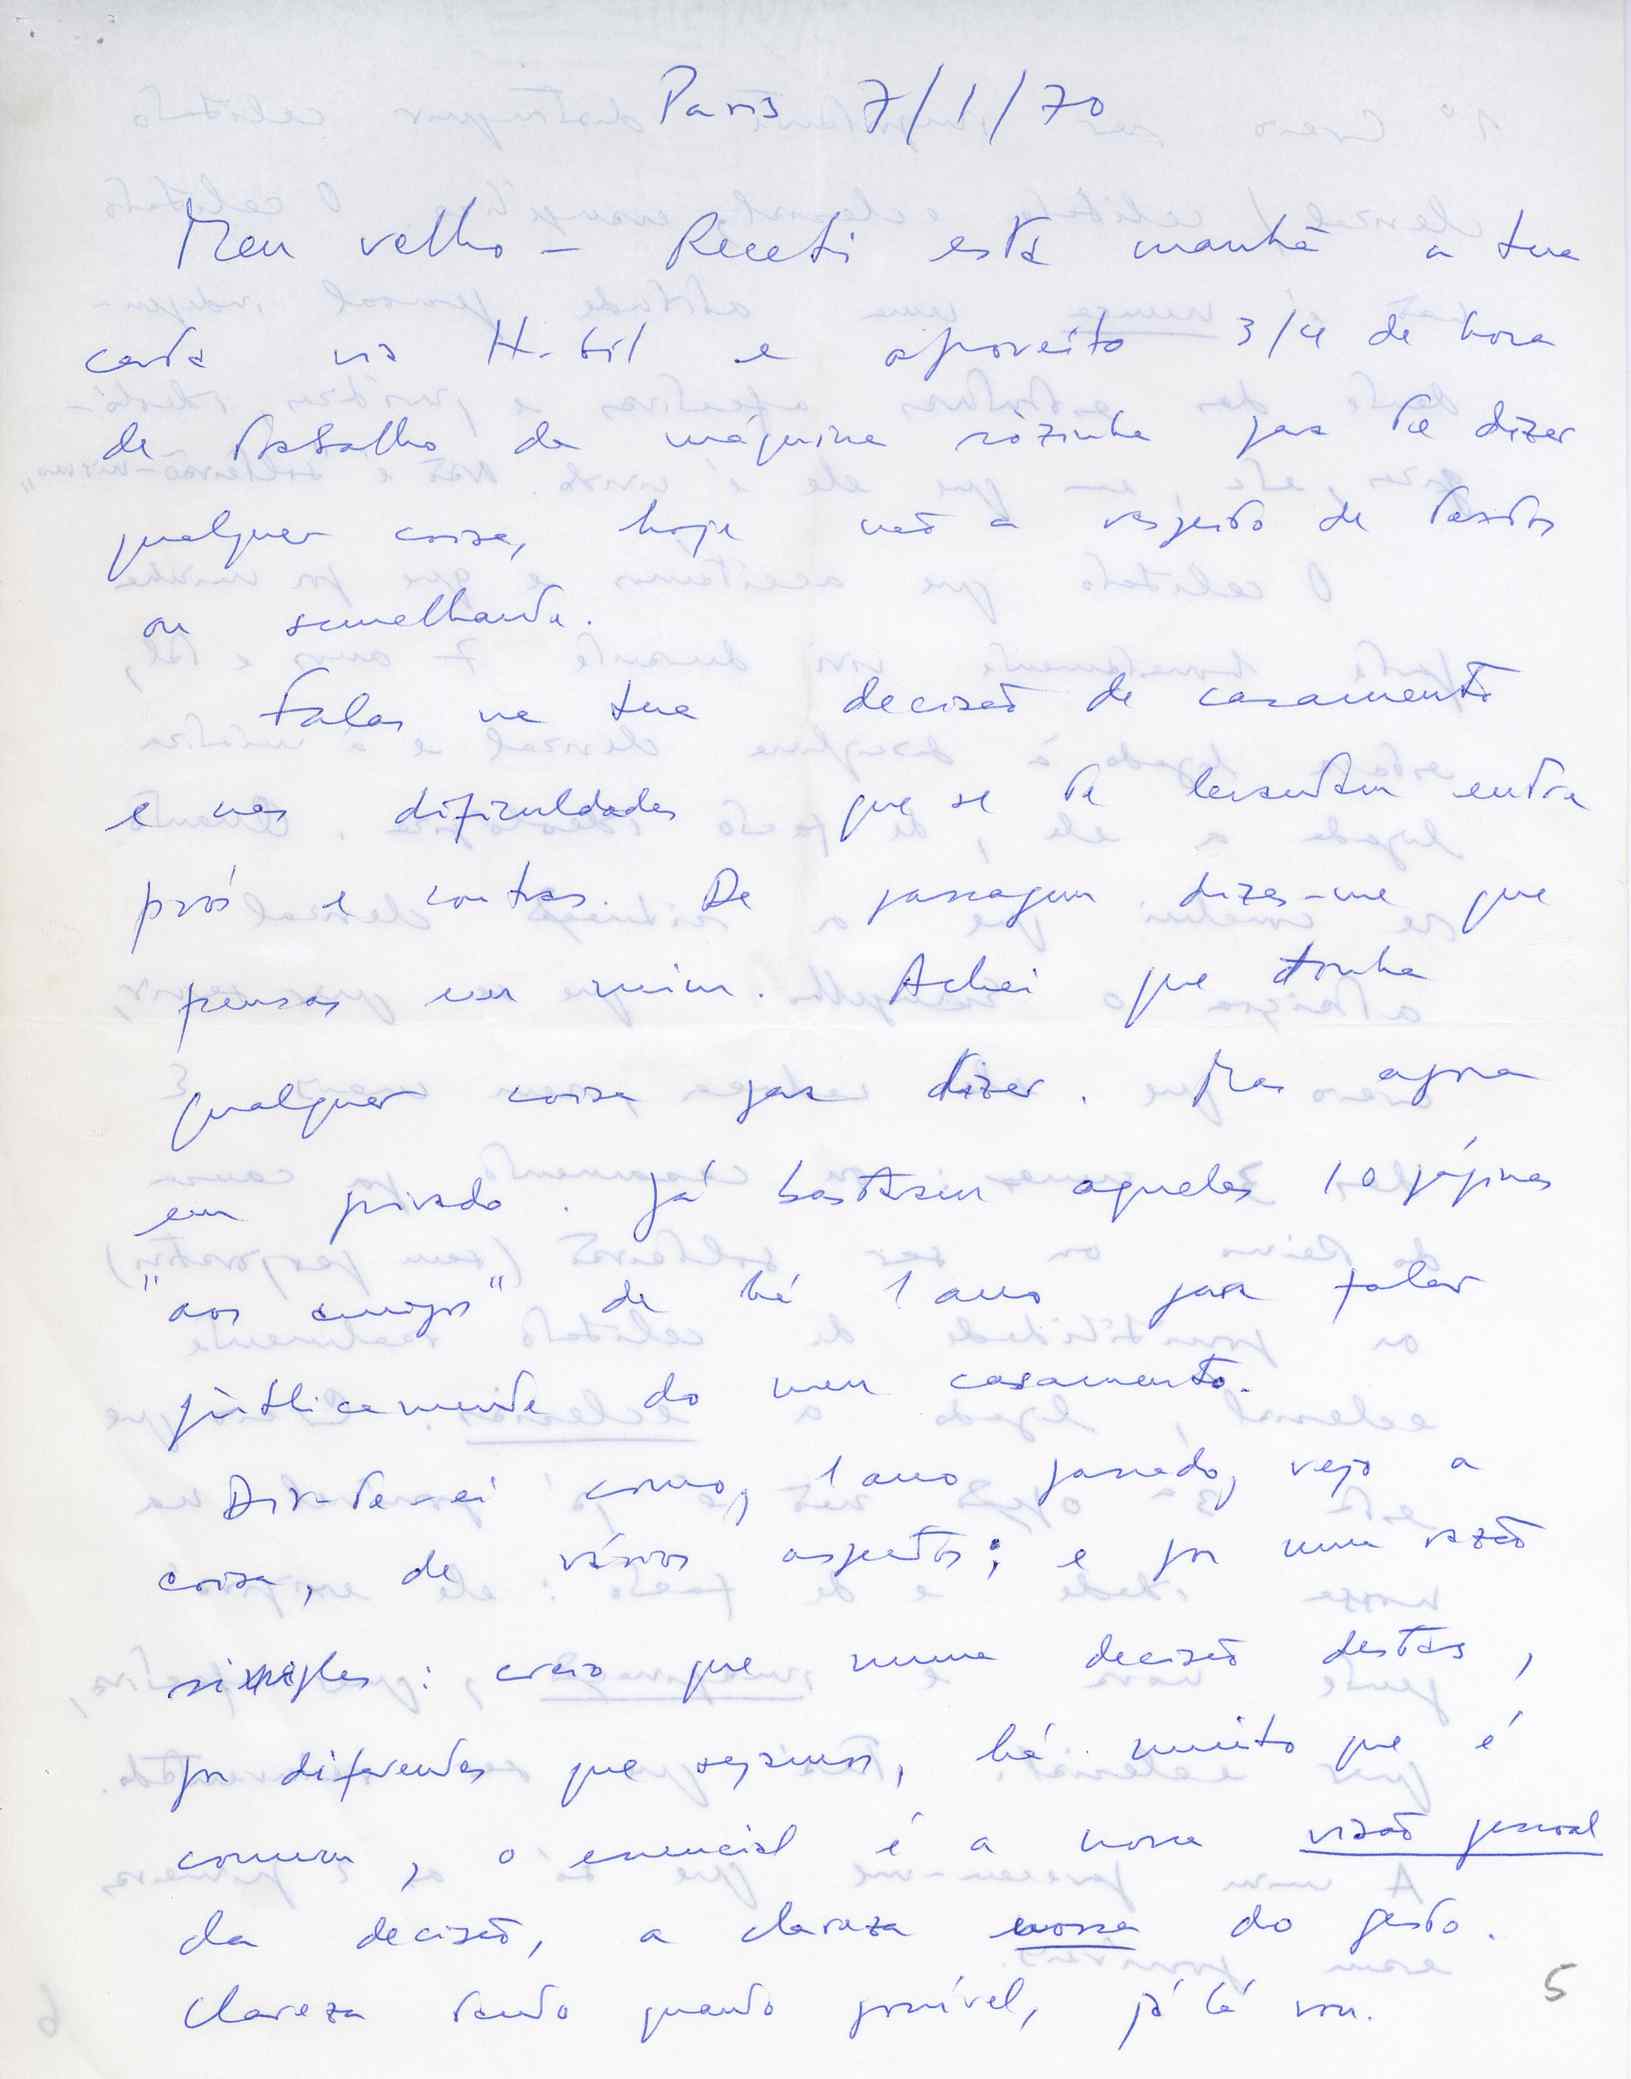 Paris 7/1/70
Meu velho - Recebi esta manhã a tua
carta via H-bil e aproveito 3/4 de hora
de trabalho da máquina sòzinha para te dizer
qualquer coisa, hoje não a respeito de textos
ou semelhante.
Falas na tua decisão de casamento
e nas dificuldades que se te levantam entre
prós e contras. De passagem dizes-me que
pensas em mim. Achei que tinha
qualquer coisa para dizer. Mas agora
em privado. Já bastaram aquelas 10 páginas
"aos amigos" de há 1 ano para falar
pùblicamente do meu casamento.
Dir-te-ei como, 1 ano passado, vejo a
coisa, de vários aspectos; e por uma razão
simples: creio que numa decisão destas,
por diferentes que sejamos, há muito que é
comum, o essencial é a nossa visão pessoal
da decisão, a clareza nossa do gesto.
Clareza tanto quanto possível, já lá vou.
5